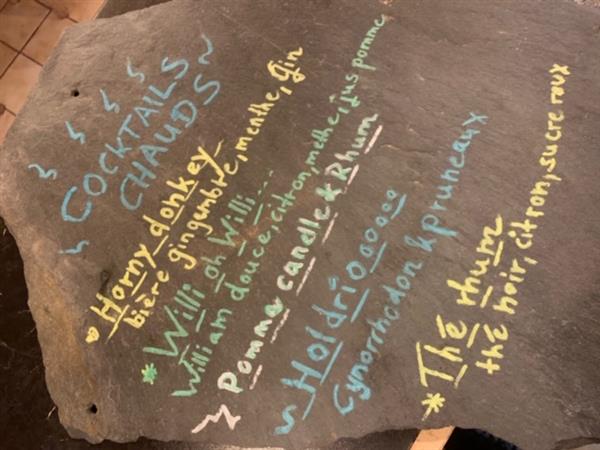 COCKTAILS
CHAUDS
Horny donkey
bière gingembre, menthe, Gin
Willi oh Willi...
William douce, citron, methe, jus pomme
Pomme candle & Rhum
Holdrioooooo
Cynorrhodon & pruneaux
Thé rhum
thé noir, citron, sucre roux